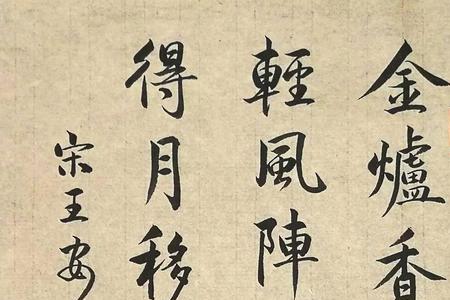 金爐香
輕風陣
得月移
宋王安